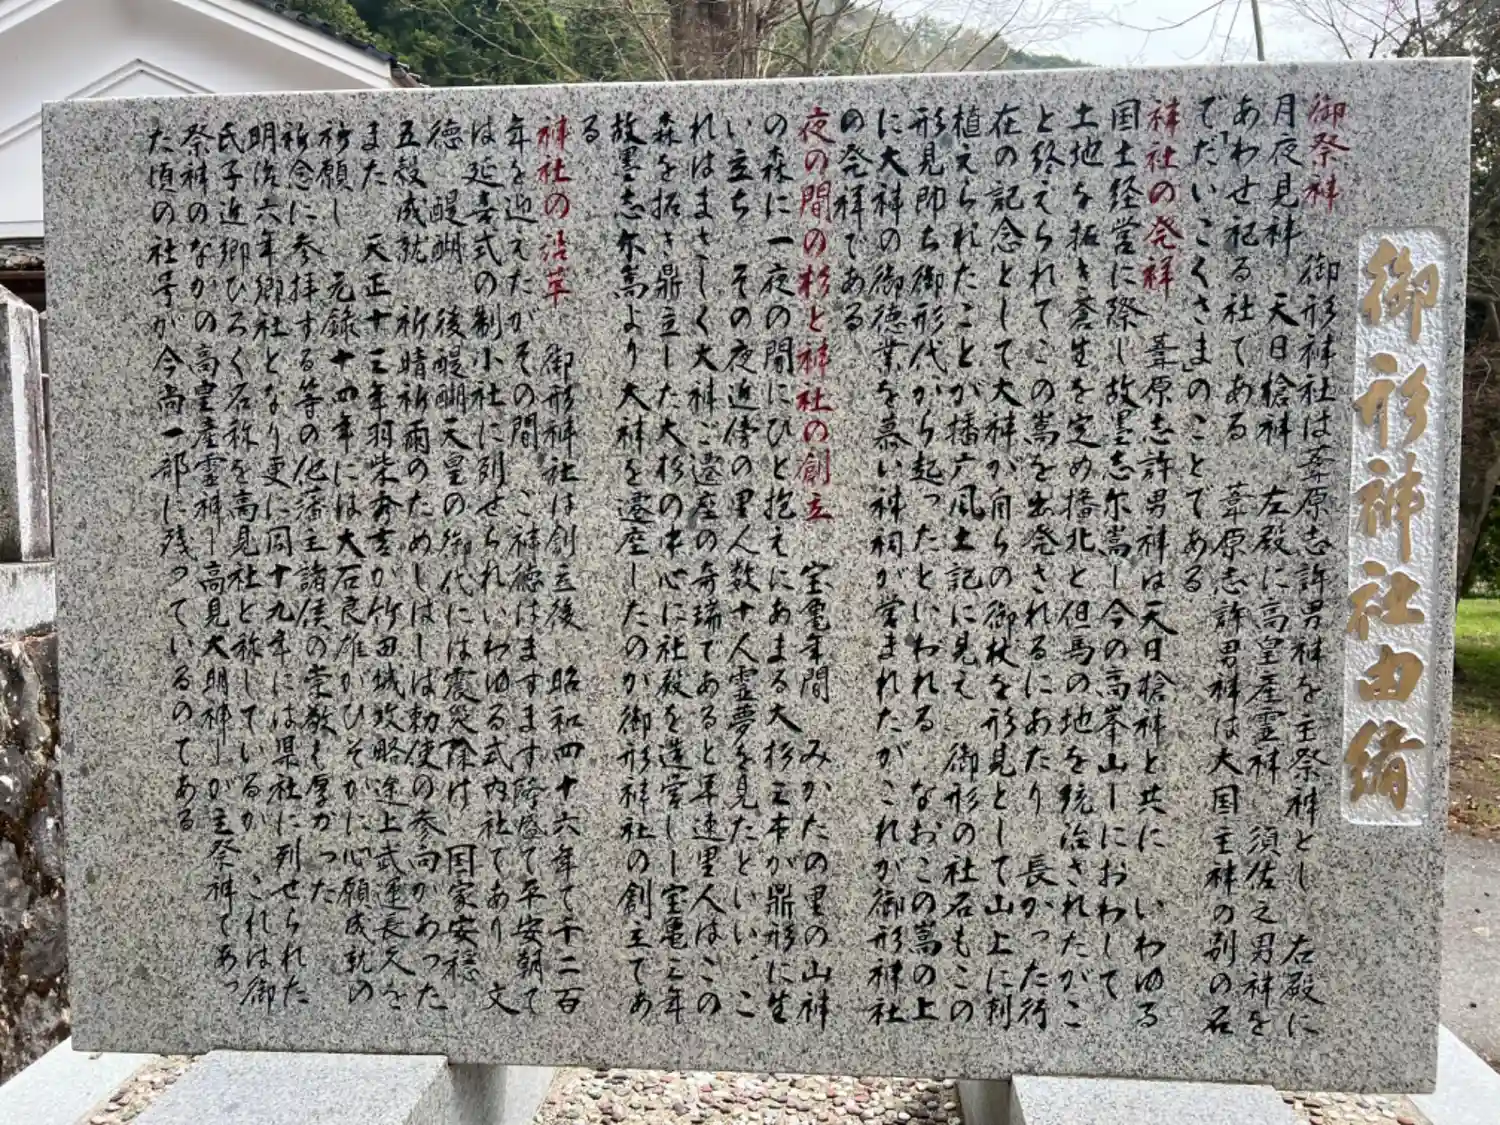 御形神社由緒
御祭神　御形神社は葦原志許男神を主祭神とし　右殿に
月夜見神　天日槍神　左殿に高皇産霊神　須佐之男神を
あわせ祀る社である　葦原志許男神は大国主神の別の名
で「だいこくさま」のことである
神社の発祥　葦原志許男神は天日槍神と共に　いわゆる
国土経営に際し故墨志尓嵩ー今の高峯山ーにおわして
土地を拓き蒼生を定め播北と但馬の地を統治されたがこ
と終えられてこの嵩を出発されるにあたり　長かった行
在の記念として大神が自らの御杖を形見として山上に刺
植えられたことが播广風土記に見え　御形の社名もこの
形見即ち御形代から起ったといわれる　なおこの嵩の上
に大神の御徳業を慕い神祠が営まれたがこれが御形神社
の発祥である
夜の間の杉と神社の創立　宝亀年間　みかたの里の山神
の森に一夜の間にひと抱えにあまる大杉三本が鼎形に生
い立ち　その夜近傍の里人数十人霊夢を見たといい　こ
れはまさしく大神ご遷座の奇瑞であると早速里人はこの
森を拓き鼎立した大杉の中心に社殿を造営し宝亀三年
故墨志尓嵩より大神を遷座したのが御形神社の創立であ
る
神社の沿革　御形神社は創立後　昭和四十六年で千二百
年を迎えたがその間　ご神徳はますます隆盛で平安朝で
は延喜式の制小社に列せられいわゆる式内社であり　文
徳　醍醐　後醍醐天皇の御代には震災除け　国家安穏
五穀成就　祈晴祈雨のためしばしば勅使の参向があった
また　天正十三年羽柴秀吉が竹田城攻略途上武運長久を
祈願し　元録十四年には大石良雄がひそかに心願成就の
祈念に参拝する等の他藩主諸侯の崇敬も厚かった
明治六年郷社となり更に同十九年には県社に列せられた
氏子近郷ひろく名称を高見社と称しているが　これは御
祭神のなかの高皇産霊神「高見大明神」が主祭神であっ
た頃の社号が今尚一部に残っているのである